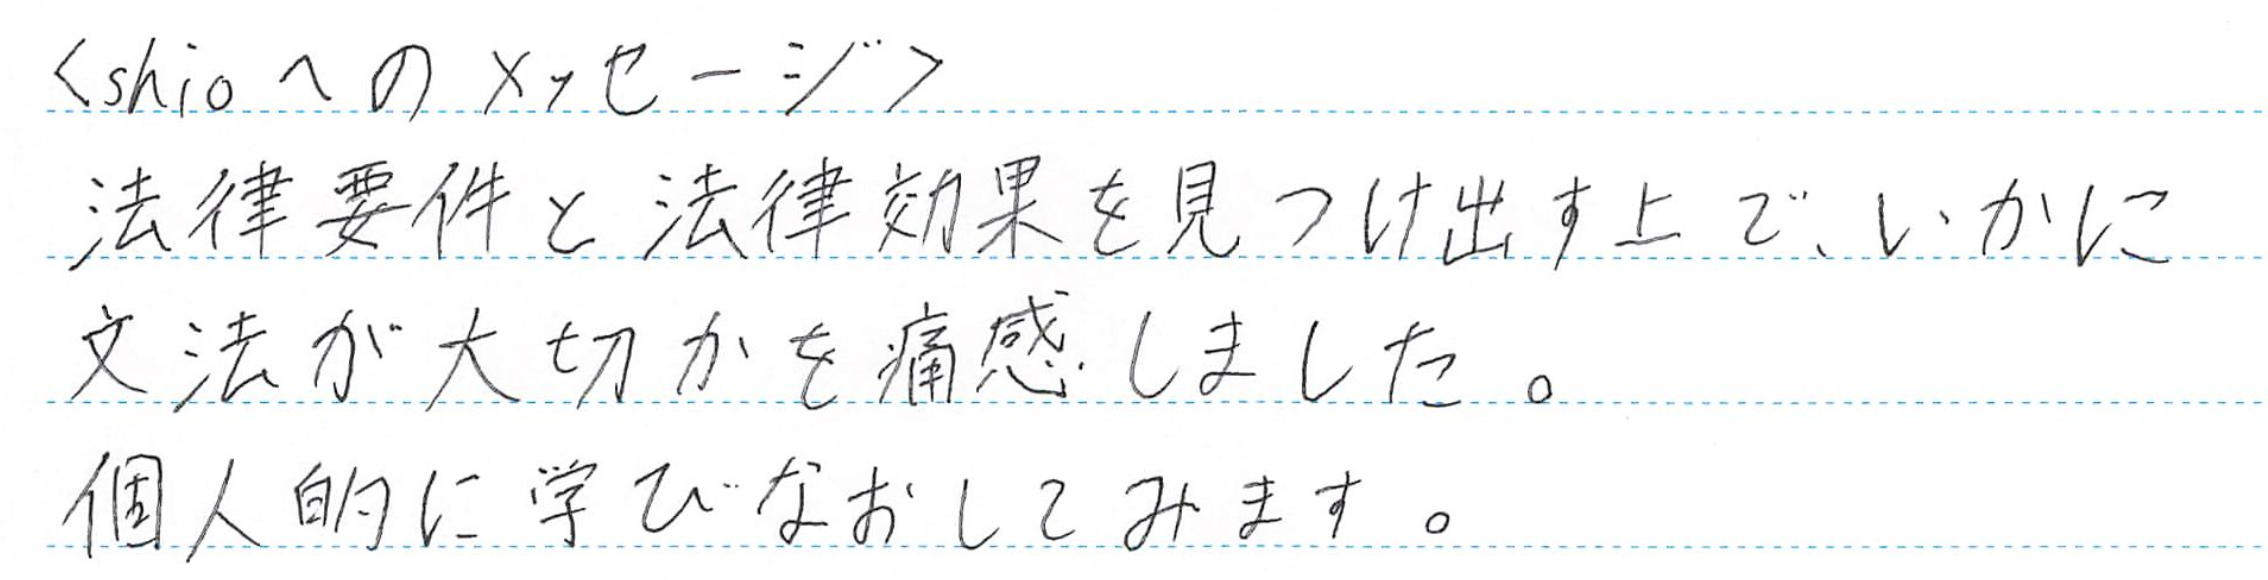 <shioへのメッセージ>
法律要件と法律効果を見つけ出す上で、いかに
文法が大切かを痛感しました。
個人的に学びなおしてみます。